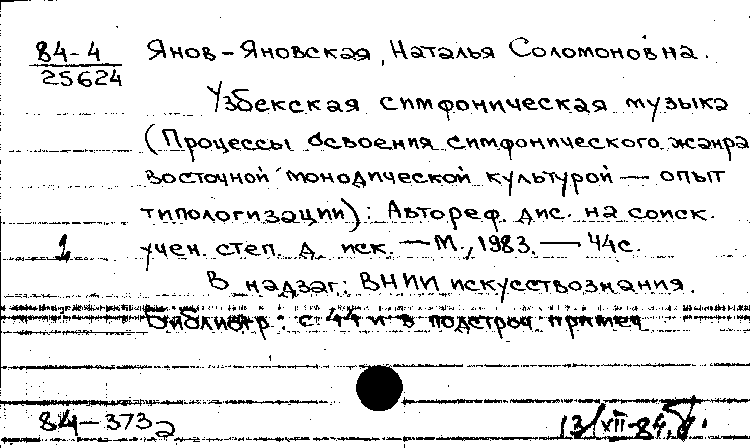 84-4
25624
Янов-Яновская, Наталья Соломоновна.
Узбекская симфоническая музыка
(Процессы освоения симфонического жанра
восточной монодической культурой — опыт
типологизации): Автореф. дис. на соиск.
1 учен. степ. д. иск. — М., 1983. — 44с.
В надзаг.: ВНИИ искусствознания.
Библиогр.: с. 44 и в подстроч. примеч.
84-373
13/XII-84.